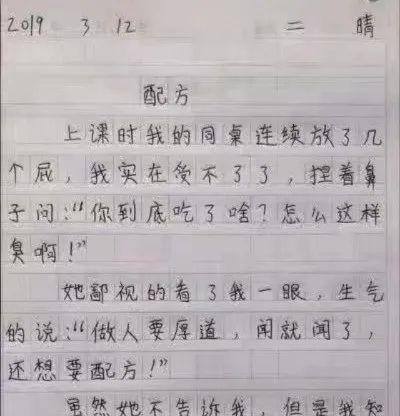 2019 3 12 二 晴
配方
上课时我的同桌连续放了几
个屁，我实在受不了了，捏着鼻
子问：“你到底吃了啥？怎么这样
臭啊！”
她鄙视的看了我一眼，生气
的说：“做人要厚道，闻就闻了，
还想要配方！”
虽然她不告诉我，但是我知